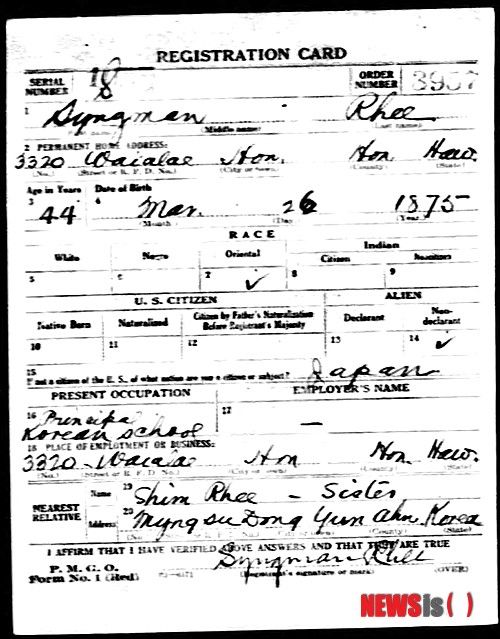 REGISTRATION CARD
SERIAL NUMBER 18 ORDER NUMBER 3957
1 Syngman Rhee
(Middle name) (Last name)
2 PERMANENT HOME ADDRESS:
3320 Waialae Hon. Hon Haw.
(No.) (Street or R. F. D. No.) (City or town) (County) (State)
Age in Years Date of Birth
3 44 4 Mar. 26 1875
(Month) (Day) (Year)
RACE
White Negro Oriental Indian
Citizen Noncitizen
5 6 7 ✓ 8 9
U. S. CITIZEN ALIEN
Native Born Naturalized Citizen by Father's Naturalization Before Registrant's Majority Declarant Non-declarant
10 11 12 13 14 ✓
15 If not a citizen of the U. S., of what nation are you a citizen or subject? Japan
PRESENT OCCUPATION EMPLOYER'S NAME
16 17 —
Korean School
18 PLACE OF EMPLOYMENT OR BUSINESS:
3320 - Waialae Hon Hon Haw.
(No.) (Street or R. F. D. No.) (City or town) (County) (State)
NEAREST RELATIVE Name 19 Shim Rhee - Sister
Address 20 Myng su Dong Yun Ahn, Korea
(No.) (County) (State)
I AFFIRM THAT I HAVE VERIFIED ABOVE ANSWERS AND THAT THEY ARE TRUE
P. M. G. O.
Form No. 1 (Red) Syngman Rhee
(Registrant's signature or mark) (OVER)
NEWSis( )